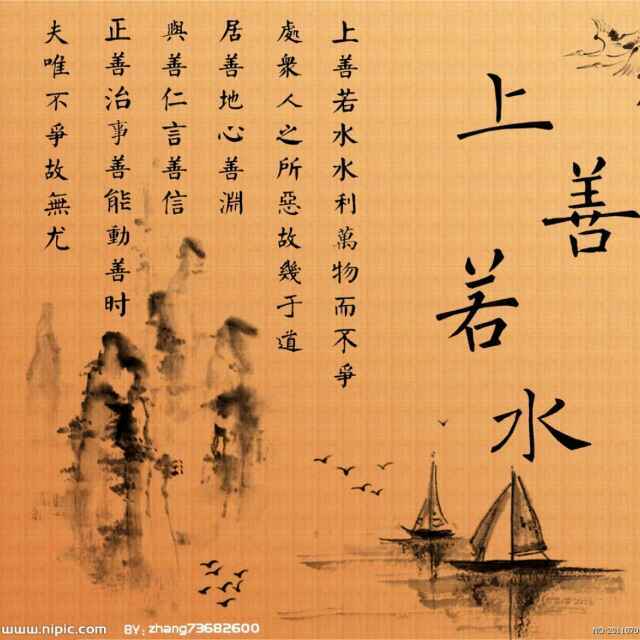 上善若水
上善若水水利萬物而不爭
處衆人之所惡故幾于道
居善地心善淵
與善仁言善信
正善治事善能動善时
夫唯不爭故無尤
www.nipic.com BY: zhang73682600